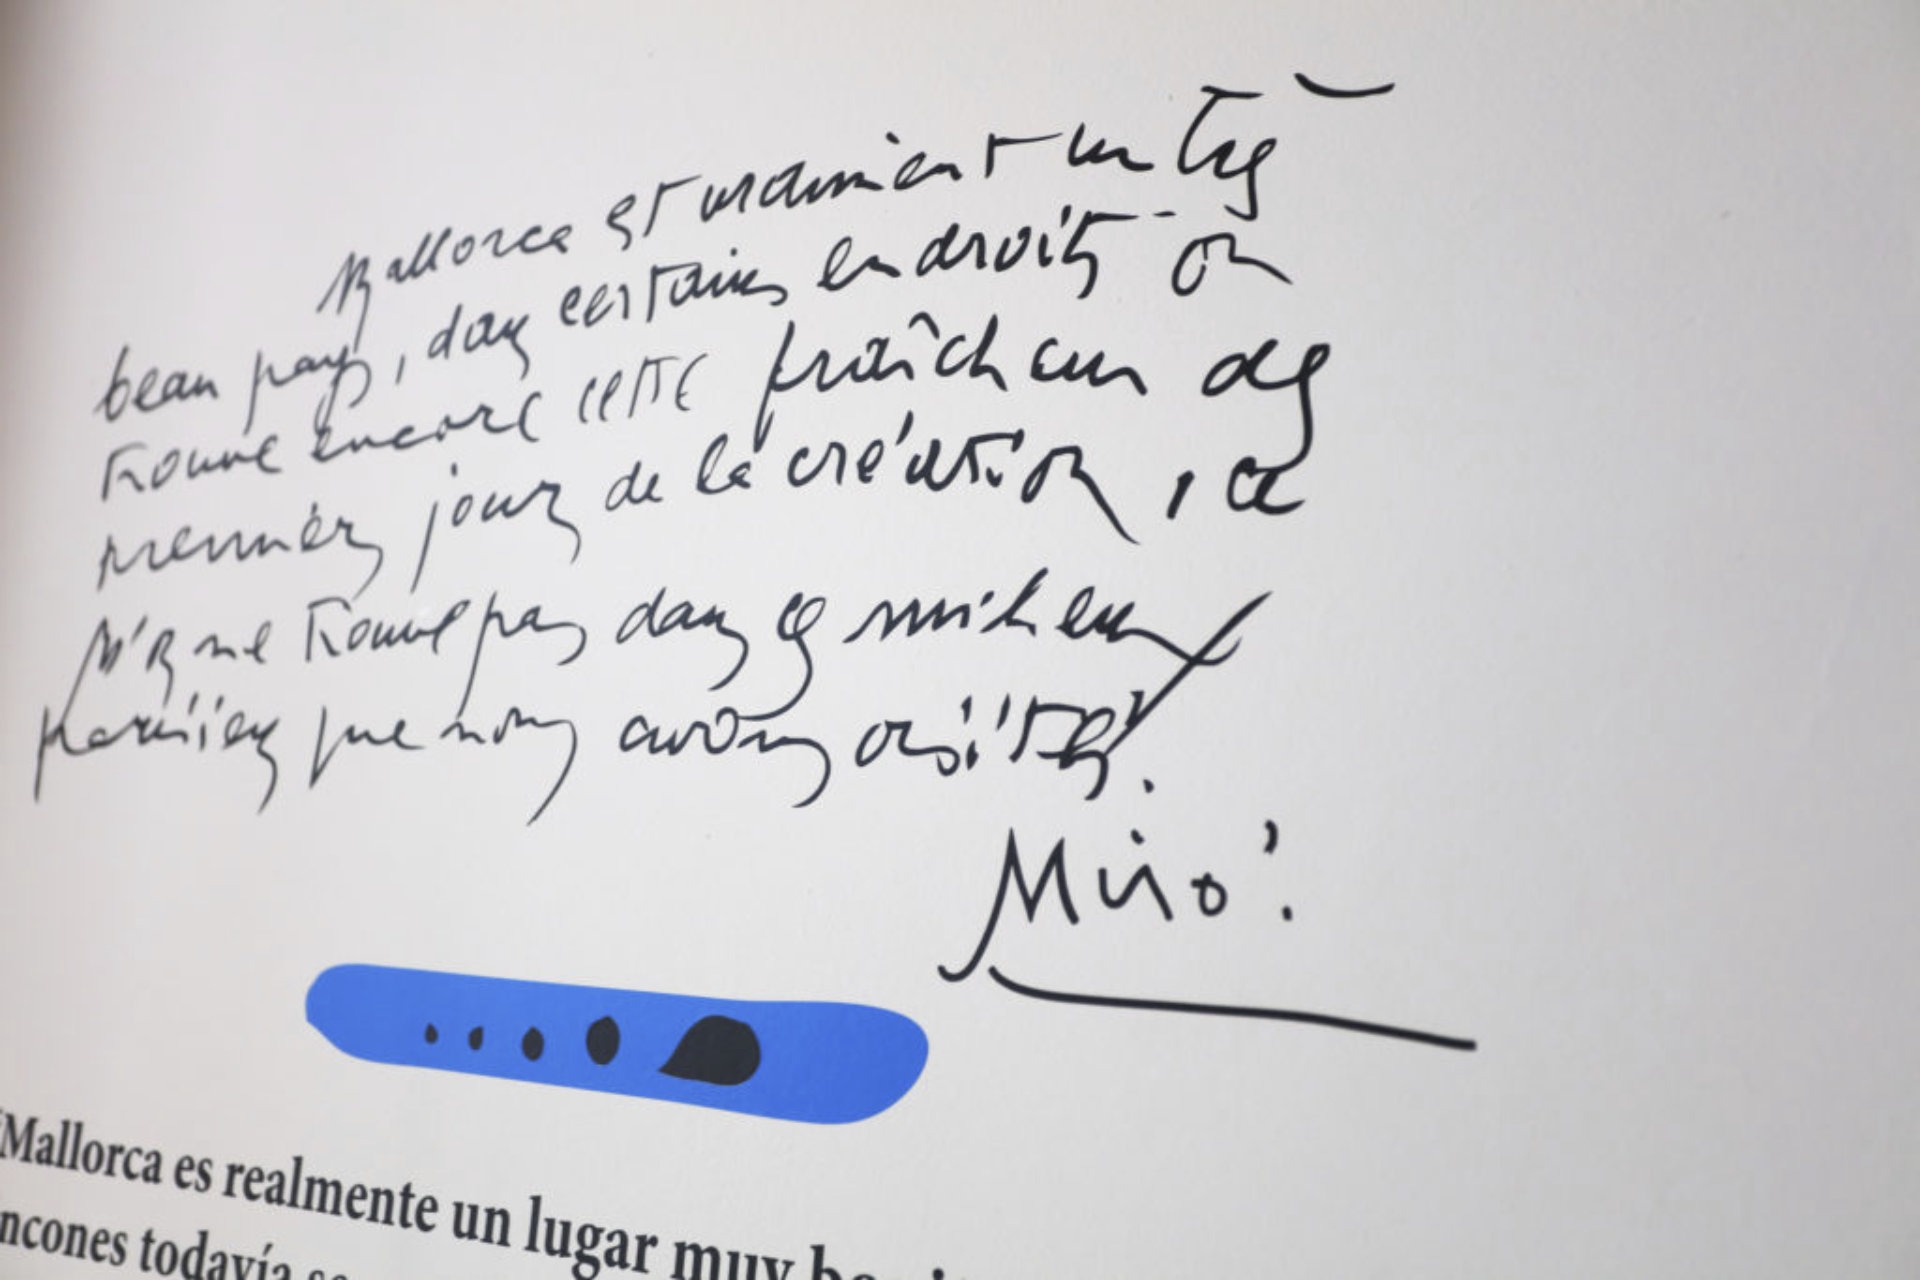 Mallorca est vraiment un très
beau pays, dans certains endroits on
trouve encore cette fraîcheur des
premièrs jours de la création, ce
ne trouve pas dans ce milieu
parisien que nous avons
Miró.
Mallorca es realmente un lugar muy
ncones todavía se